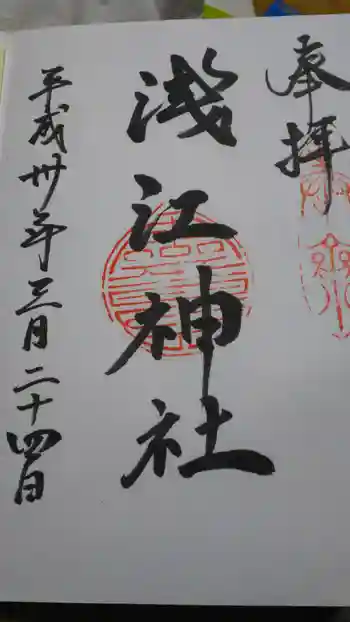 奉拝
淺江神社
平成卅年三月二十四日